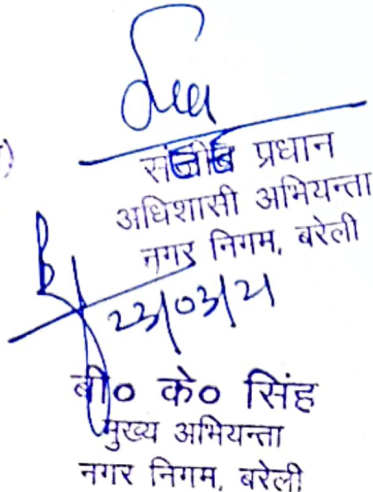 प्रधान
अधिशासी अभियन्ता
नगर निगम, बरेली
23/03/21
बी० के० सिंह
मुख्य अभियन्ता
नगर निगम, बरेली